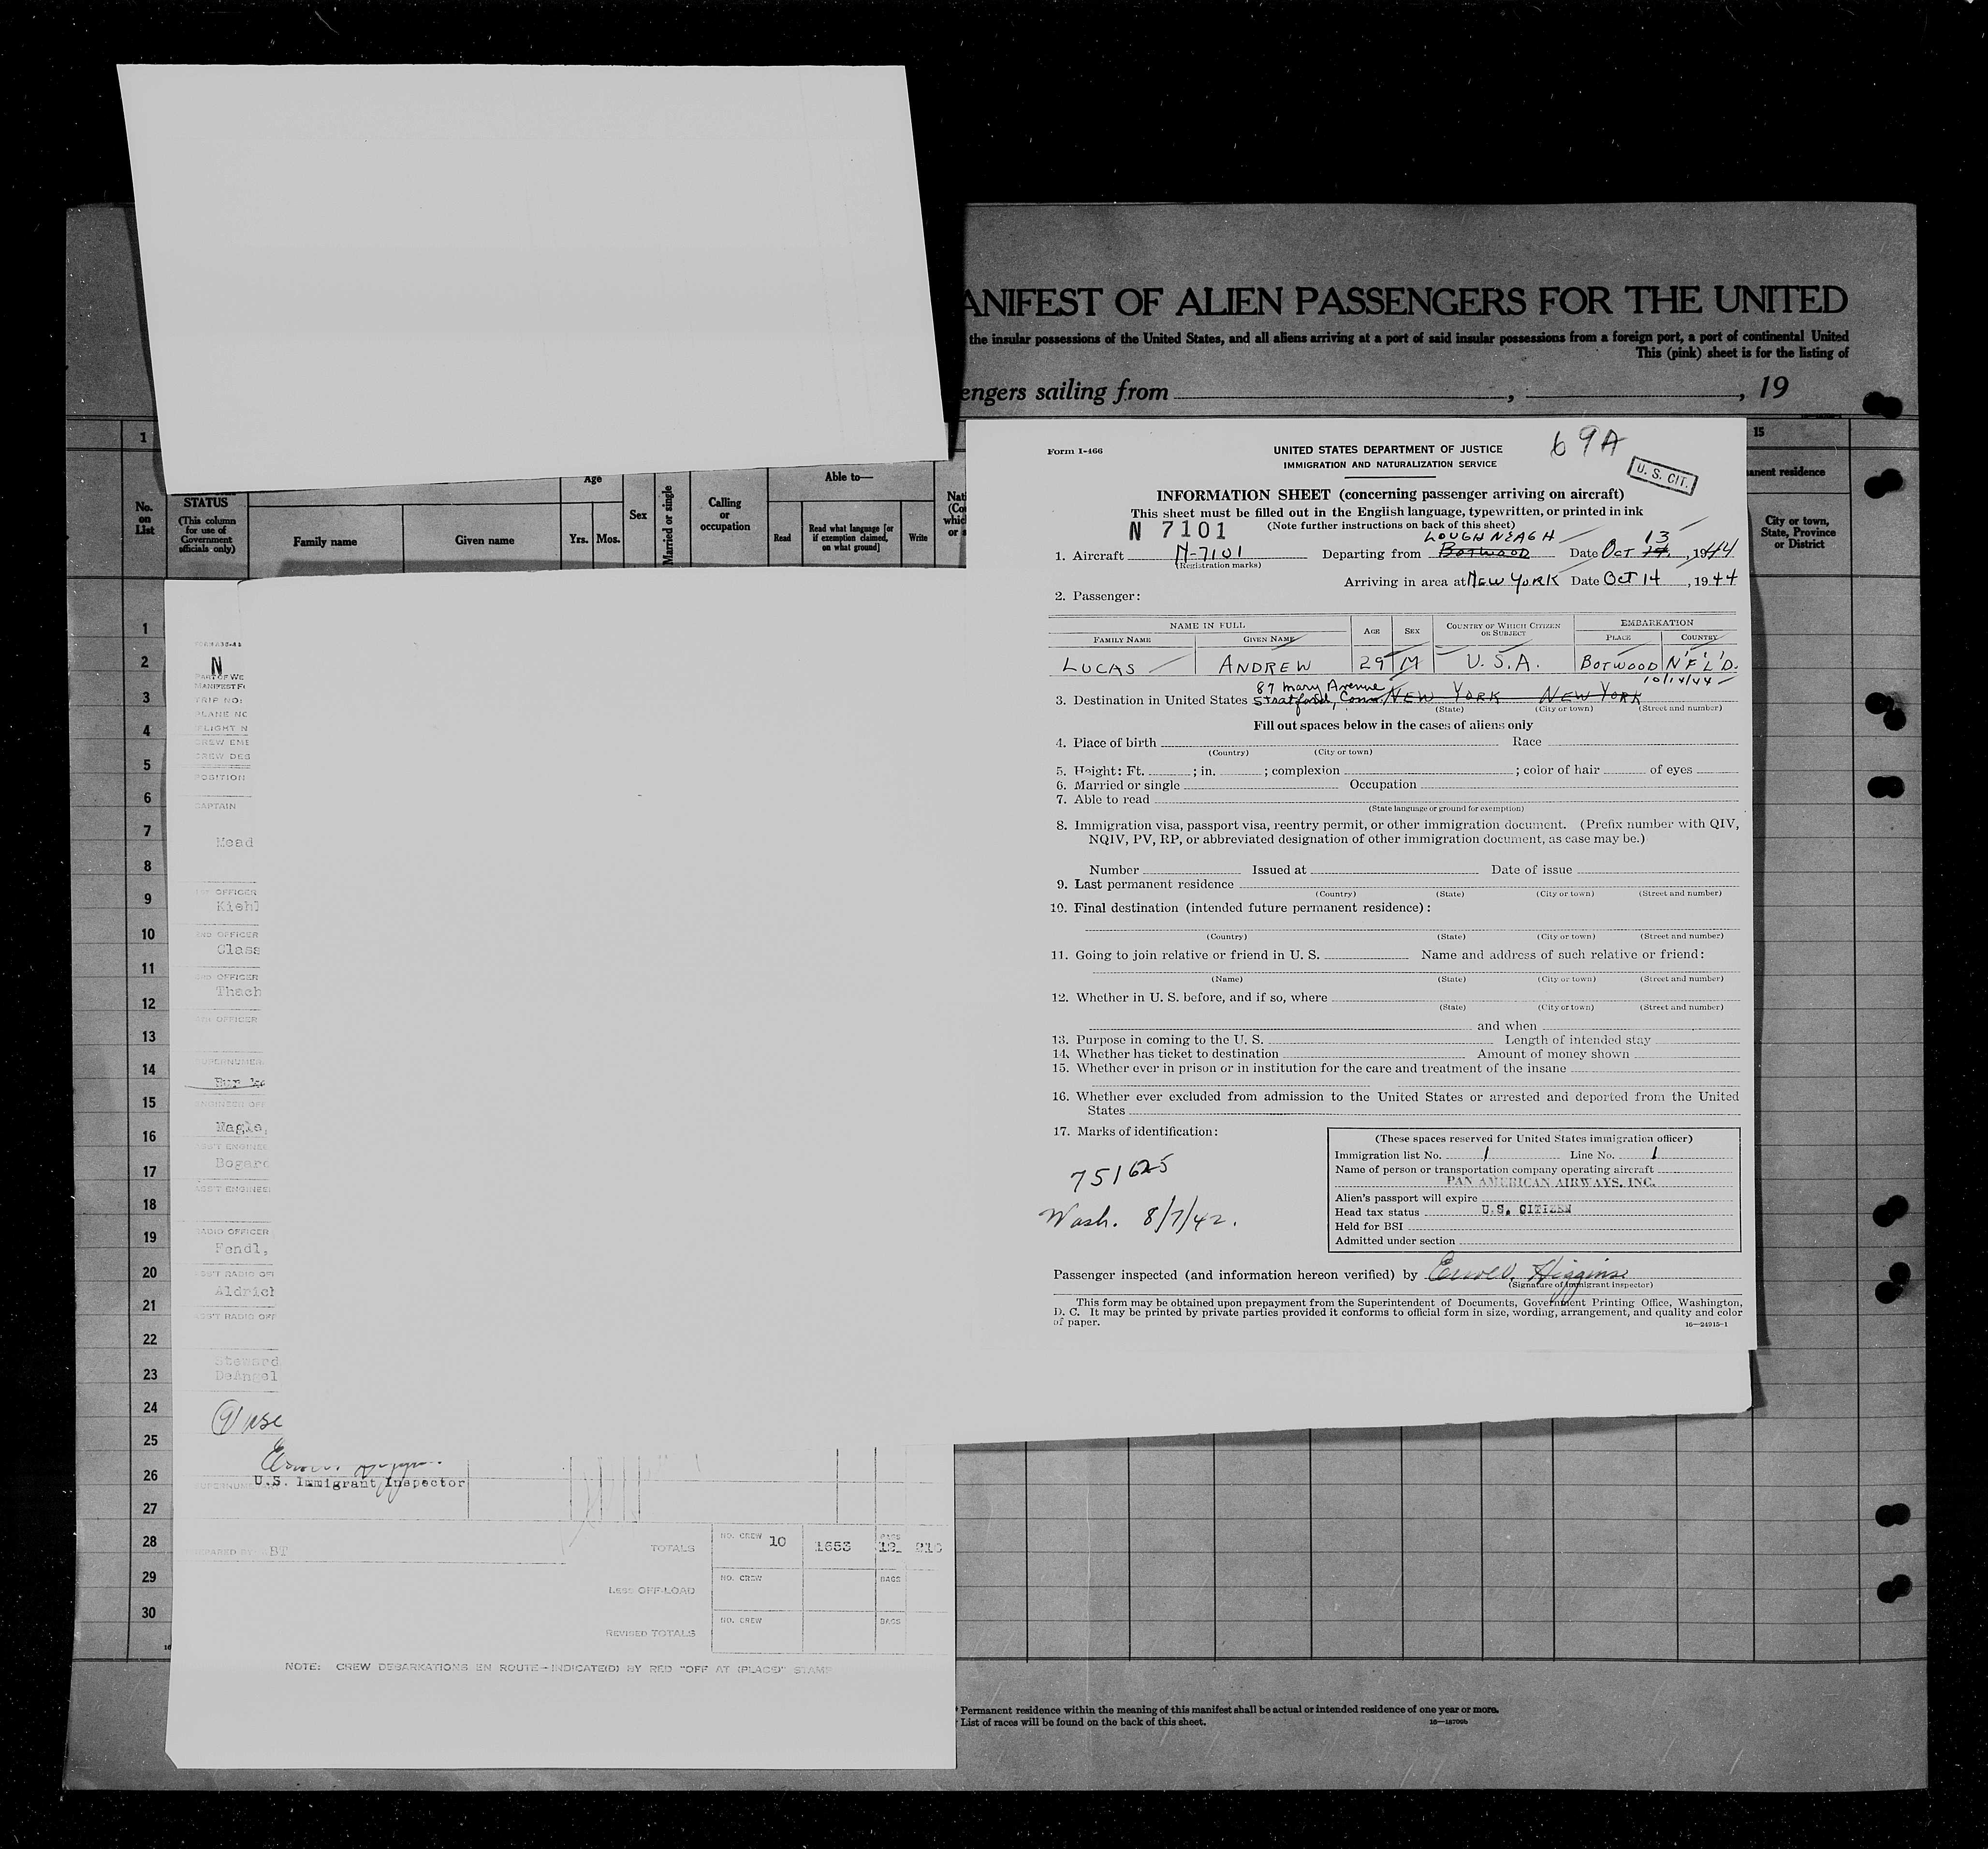 MANIFEST OF ALIEN PASSENGERS FOR THE UNITED
the insular possessions of the United States, and all aliens arriving at a port of said insular possessions from a foreign port, a port of continental United
This (pink) sheet is for the listing of
engers sailing from , , 19
1
15
No. on List
STATUS
(This column for use of Government officials only)
Family name
Given name
Age
Yrs.
Mos.
Sex
Married or single
Calling or occupation
Able to—
Read
Read what language [or if exemption claimed, on what ground]
Write
anent residence
City or town, State, Province or District
1
2
3
4
5
6
7
8
9
10
11
12
13
14
15
16
17
18
19
20
21
22
23
24
25
26
27
28
29
30
N
PART OF WE
MANIFEST F
TRIP NO:
PLANE NO
FLIGHT N
CREW EMB
CREW DEB
POSITION
CAPTAIN
Mead
OFFICER
Kiehl
OFFICER
Glass
OFFICER
Thach
OFFICER
SUPERNUMER
Burke
ENGINEER OFF
Nagle,
ASS'T ENGINEE
Bogard
ASS'T ENGINEE
RADIO OFFICER
Fendl,
ASS'T RADIO OFF
Aldrich
ASS'T RADIO OFF
Steward
DeAngel
U.S. Immigrant Inspector
PREPARED BY BT
TOTALS
NO. CREW 10
1653
BAGS
LESS OFF-LOAD
NO. CREW
BAGS
REVISED TOTALS
NO. CREW
BAGS
NOTE: CREW DEBARKATIONS EN ROUTE—INDICATE(D) BY RED "OFF AT (PLACE)" STAMP
Form I-466
UNITED STATES DEPARTMENT OF JUSTICE
IMMIGRATION AND NATURALIZATION SERVICE
69A
U. S. CIT.
INFORMATION SHEET (concerning passenger arriving on aircraft)
This sheet must be filled out in the English language, typewritten, or printed in ink
(Note further instructions on back of this sheet)
N 7101
LOUGH NEAGH 13
1. Aircraft N-7101 Departing from Botwood Date Oct 14. , 1944
(Registration marks)
Arriving in area at New York Date Oct 14 , 1944
2. Passenger:
NAME IN FULL
FAMILY NAME
GIVEN NAME
AGE
SEX
COUNTRY OF WHICH CITIZEN OR SUBJECT
EMBARKATION
PLACE
COUNTRY
LUCAS ANDREW 29 M U.S.A. BOTWOOD N'F'L'D.
10/14/44
87 Mary Avenue
3. Destination in United States Stratford, Conn. NEW YORK NEW YORK
(State) (City or town) (Street and number)
Fill out spaces below in the cases of aliens only
4. Place of birth Race
(Country) (City or town)
5. Height: Ft. ; in. ; complexion ; color of hair of eyes
6. Married or single Occupation
7. Able to read
(State language or ground for exemption)
8. Immigration visa, passport visa, reentry permit, or other immigration document. (Prefix number with QIV,
NQIV, PV, RP, or abbreviated designation of other immigration document, as case may be.)
Number Issued at Date of issue
9. Last permanent residence
(Country) (State) (City or town) (Street and number)
10. Final destination (intended future permanent residence):
(Country) (State) (City or town) (Street and number)
11. Going to join relative or friend in U. S. Name and address of such relative or friend:
(Name) (State) (City or town) (Street and number)
12. Whether in U. S. before, and if so, where
(State) (City or town) (Street and number)
and when
13. Purpose in coming to the U. S. Length of intended stay
14. Whether has ticket to destination Amount of money shown
15. Whether ever in prison or in institution for the care and treatment of the insane
16. Whether ever excluded from admission to the United States or arrested and deported from the United
States
17. Marks of identification:
751625
Wash. 8/7/42.
(These spaces reserved for United States immigration officer)
Immigration list No. 1 Line No. 1
Name of person or transportation company operating aircraft
PAN AMERICAN AIRWAYS, INC.
Alien's passport will expire
Head tax status U.S. CITIZEN
Held for BSI
Admitted under section
Passenger inspected (and information hereon verified) by Higgins
(Signature of immigrant inspector)
This form may be obtained upon prepayment from the Superintendent of Documents, Government Printing Office, Washington,
D. C. It may be printed by private parties provided it conforms to official form in size, wording, arrangement, and quality and color
of paper.
16—24915-1
* Permanent residence within the meaning of this manifest shall be actual or intended residence of one year or more.
† List of races will be found on the back of this sheet.